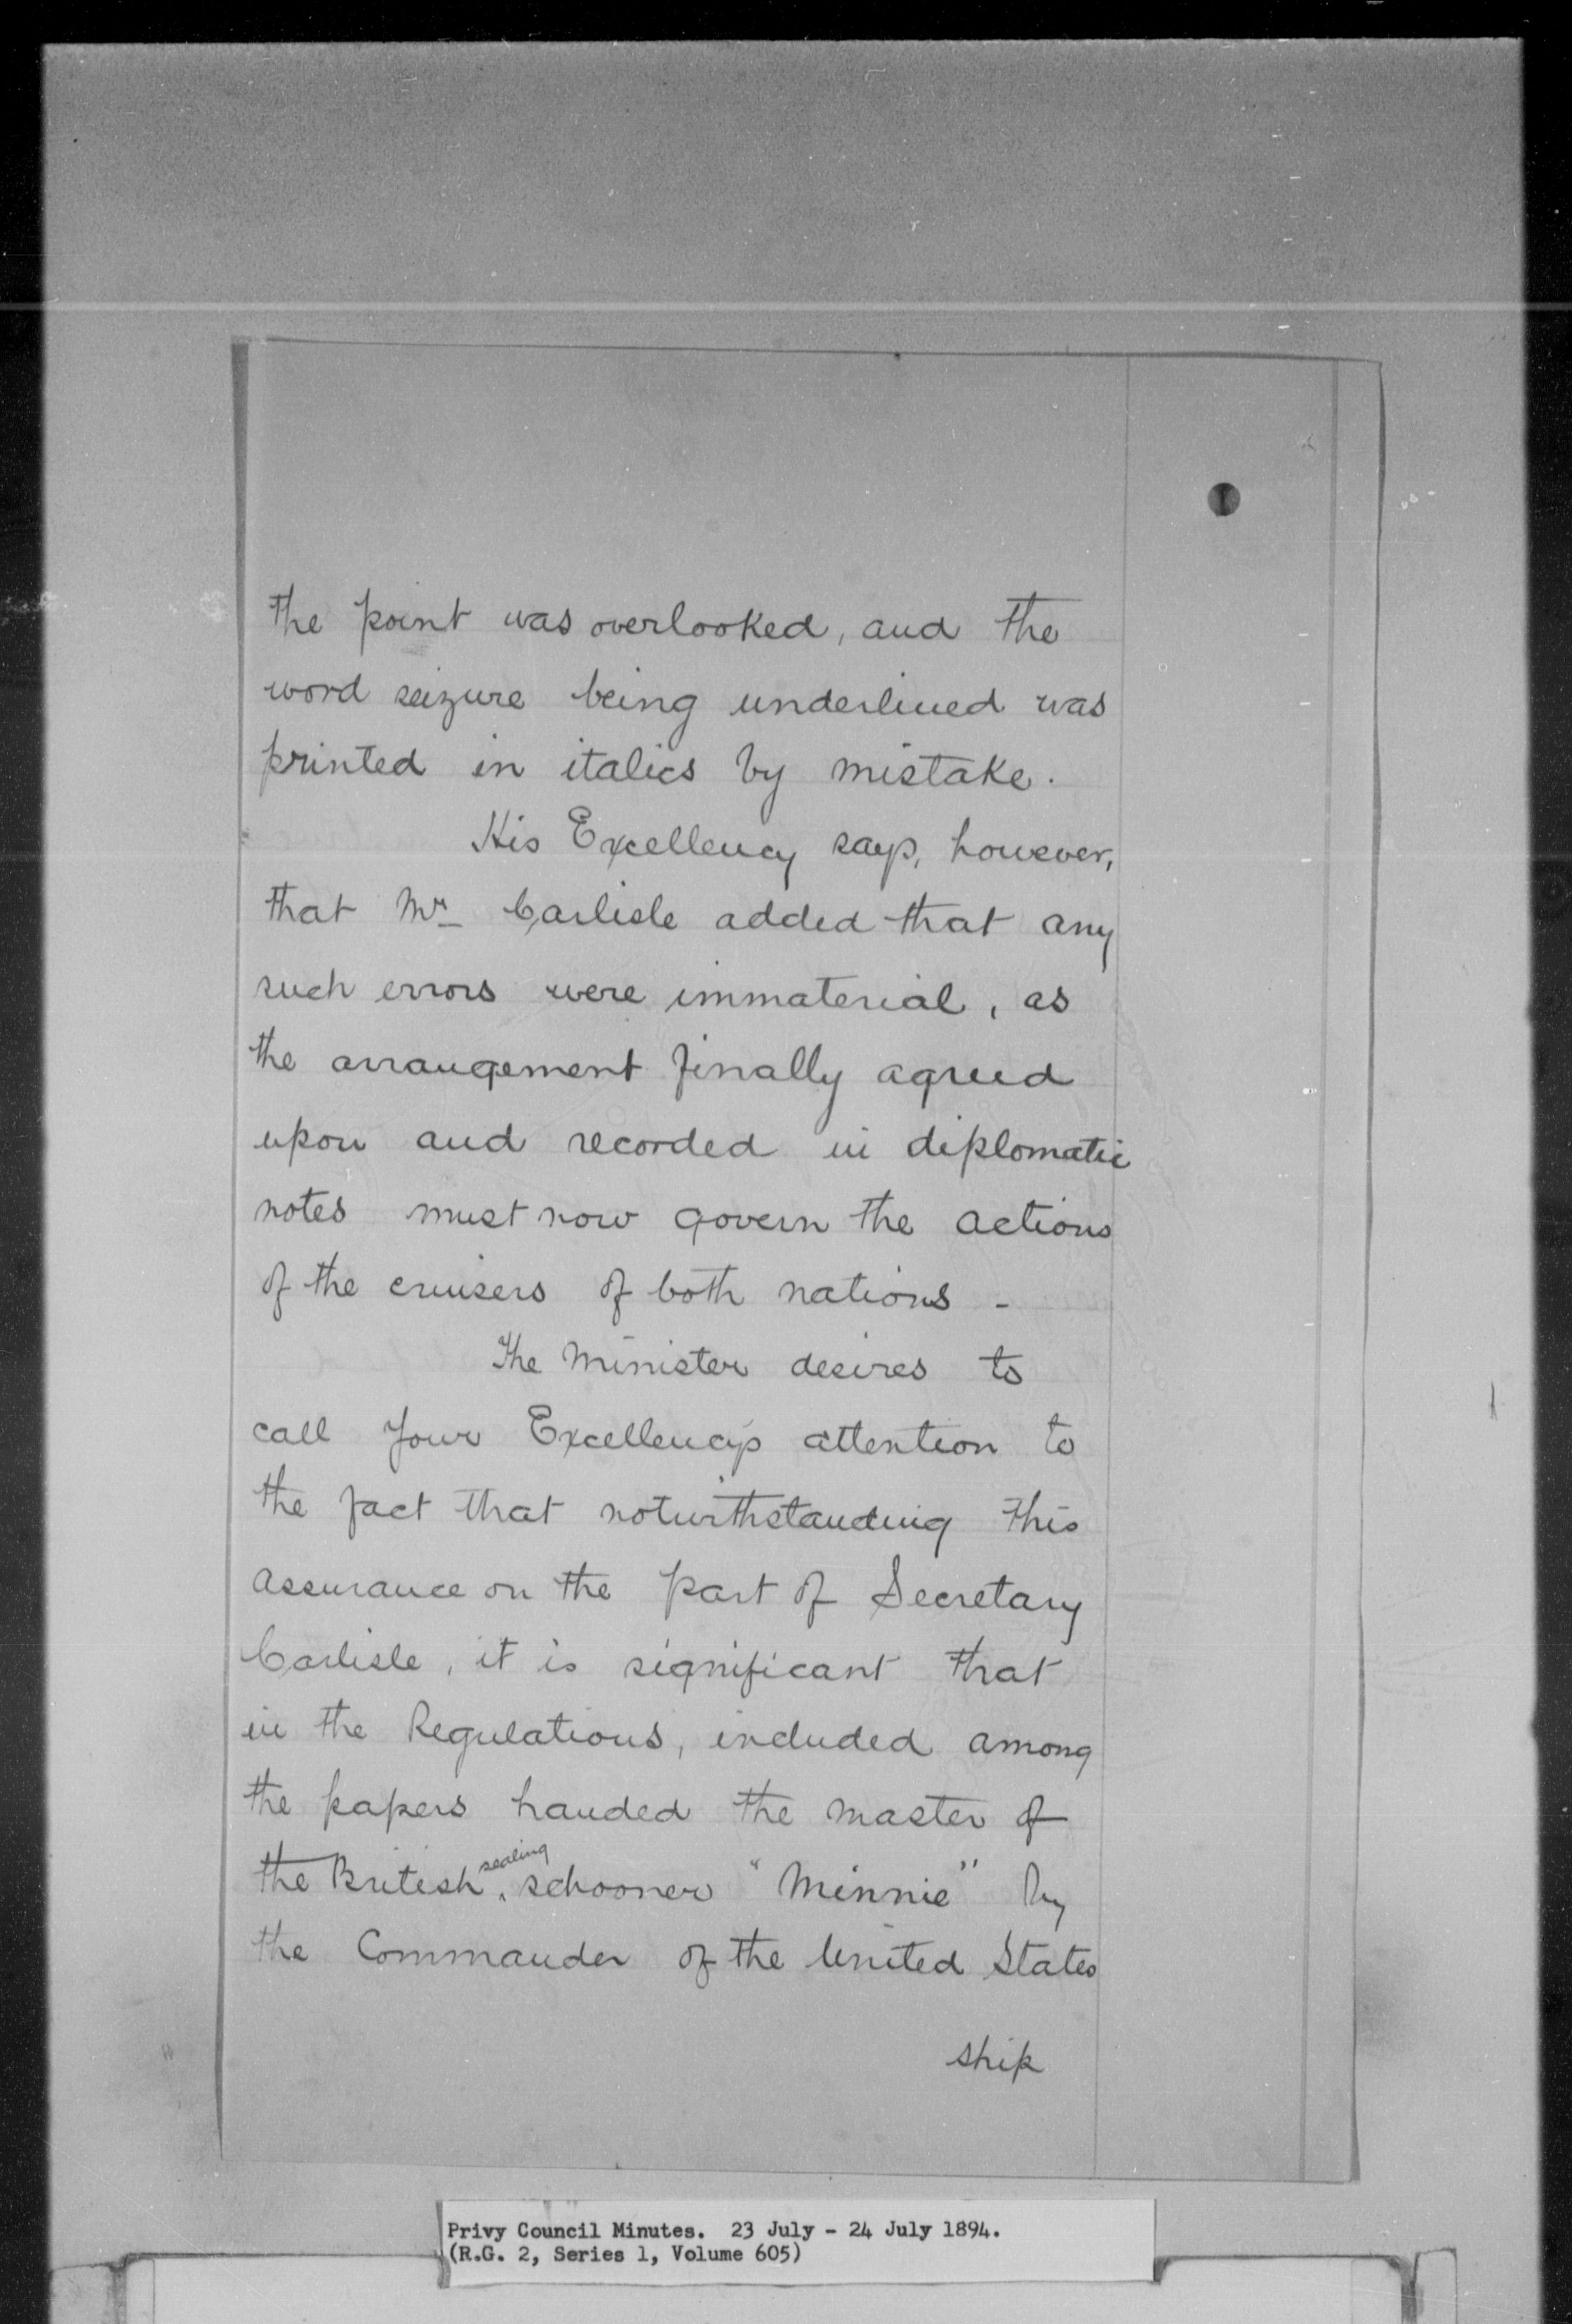 the point was overlooked, and the
word seizure being underlined was
printed in italics by mistake.
His Excellency says, however,
that Mr Carlisle added that any
such errors were immaterial, as
the arrangement finally agreed
upon and recorded in diplomatic
notes must now govern the actions
of the cruisers of both nations -
The Minister desires to
call Your Excellency's attention to
the fact that notwithstanding this
assurance on the part of Secretary
Carlisle, it is significant that
in the Regulations, included among
the papers handed the master of
the British sealing schooner "Minnie" by
the Commander of the United States
ship
Privy Council Minutes. 23 July - 24 July 1894.
(R.G. 2, Series 1, Volume 605)